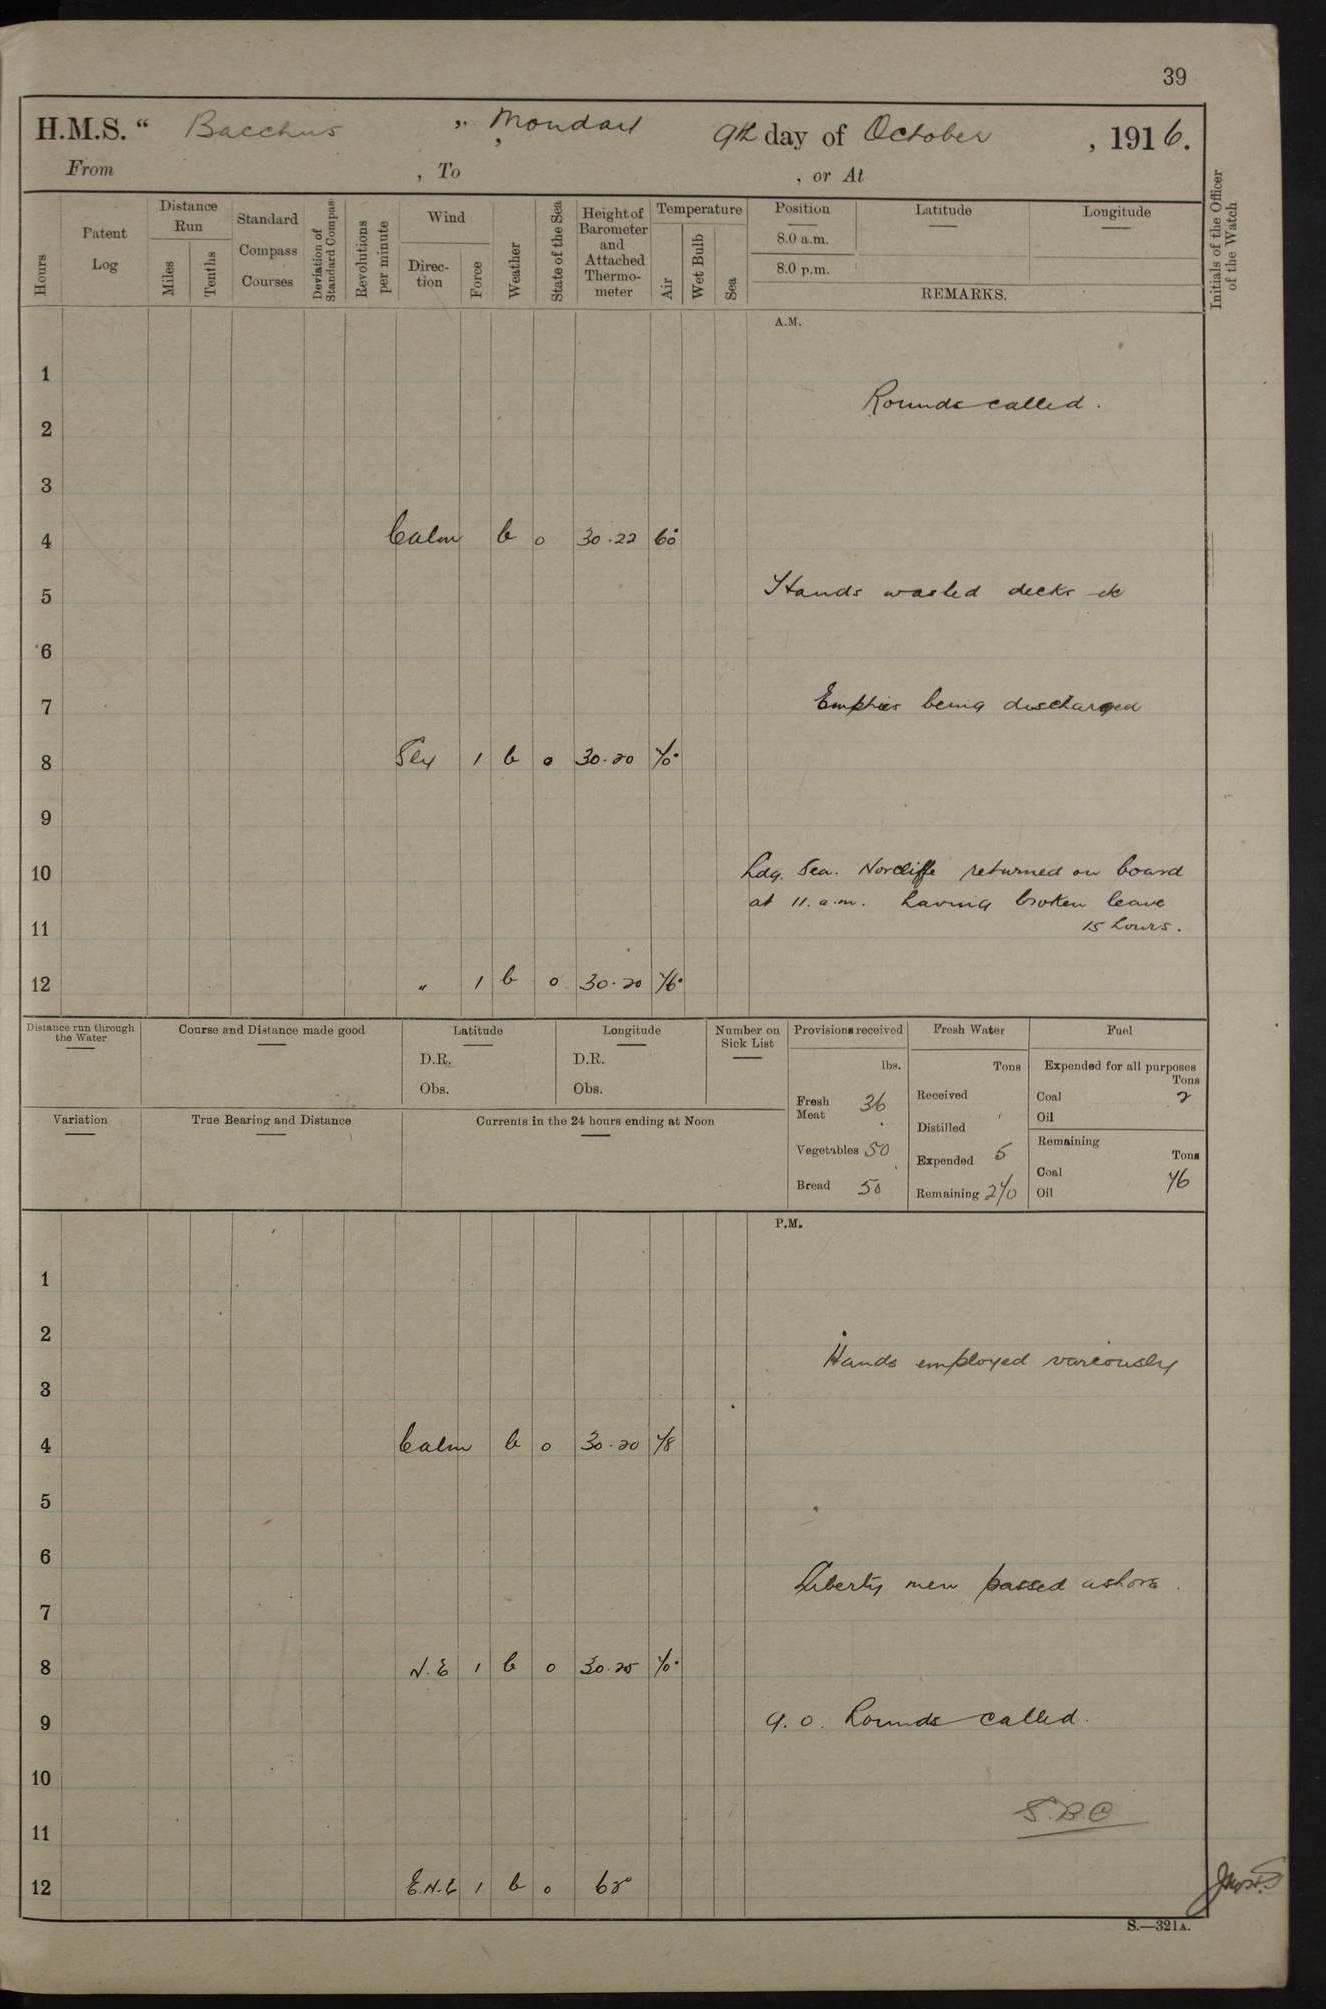 39
H.M.S. “ Bacchus ”, Monday 9th day of October , 1916.
From , To , or At
Hours
Patent Log
Distance Run
Miles
Tenths
Standard Compass Courses
Deviation of Standard Compass
Revolutions per minute
Wind
Direc-tion
Force
Weather
State of the Sea
Height of Barometer and Attached Thermo-meter
Temperature
Air
Wet Bulb
Sea
Position
8.0 a.m.
8.0 p.m.
Latitude
Longitude
REMARKS.
Initials of the Officer of the Watch
A.M.
1
Rounds called.
2
3
4 Calm b o 30.22 60°
5 Hands washed decks etc
6
7 Empties being discharged
8 Sly 1 b o 30.20 70°
9
10 Ldg. Sea. Norcliffe returned on board
at 11. a.m. having broken leave
11 15 hours.
12 „ 1 b o 30.20 76°
Distance run through the Water
Course and Distance made good
Latitude
D.R.
Obs.
Longitude
D.R.
Obs.
Number on Sick List
Provisions received
lbs.
Fresh Meat 36
Vegetables 50
Bread 50
Fresh Water
Tons
Received
Distilled
Expended 5
Remaining 270
Fuel
Expended for all purposes
Tons
Coal 2
Oil
Remaining
Tons
Coal 76
Oil
Variation
True Bearing and Distance
Currents in the 24 hours ending at Noon
P.M.
1
2
Hands employed variously
3
4 Calm b o 30.20 78
5
6
Liberty men passed ashore.
7
8 N.E 1 b o 30.25 70°
9 9.0. Rounds called.
10
S.B.C
11
12 E.N.E 1 b o
S.—321A.